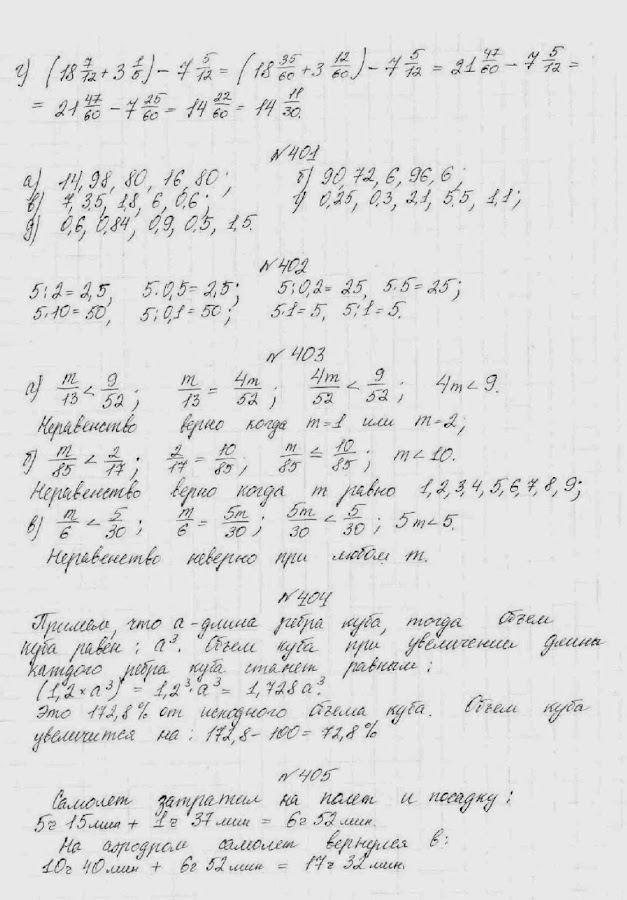 г) (18 7/12 + 3 1/5) - 7 5/12 = (18 35/60 + 3 12/60) - 7 5/12 = 21 47/60 - 7 5/12 =
= 21 47/60 - 7 25/60 = 14 22/60 = 14 11/30.
№401
а) 14, 98, 80, 16, 80; б) 90, 72, 6, 96, 6;
в) 7, 3,5, 1,8, 6, 0,6; г) 0,25, 0,3, 2,1, 5,5, 1,1;
д) 0,6, 0,84, 0,9, 0,5, 1,5.
№402
5:2=2,5, 5·0,5=2,5; 5:0,2=25, 5·5=25;
5·10=50, 5:0,1=50; 5·1=5, 5:1=5.
№403
а) m/13 < 9/52; m/13 = 4m/52; 4m/52 < 9/52; 4m<9.
Неравенство верно когда m=1 или m=2;
б) m/85 < 2/17; 2/17 = 10/85; m/85 < 10/85; m<10.
Неравенство верно когда m равно 1,2,3,4,5,6,7,8,9;
в) m/6 < 5/30; m/6 = 5m/30; 5m/30 < 5/30; 5m<5.
Неравенство неверно при любом m.
№404
Примем, что а - длина ребра куба, тогда объем
куба равен: a³. Объем куба при увеличении длины
каждого ребра куба станет равным:
(1,2×a³) = 1,2³·a³ = 1,728a³.
Это 172,8% от исходного объема куба. Объем куба
увеличится на: 172,8-100=72,8%
№405
Самолет затратил на полет и посадку:
5ч 15мин + 1ч 37мин = 6ч 52мин.
На аэродром самолет вернулся в:
10ч 40мин + 6ч 52мин = 17ч 32мин.